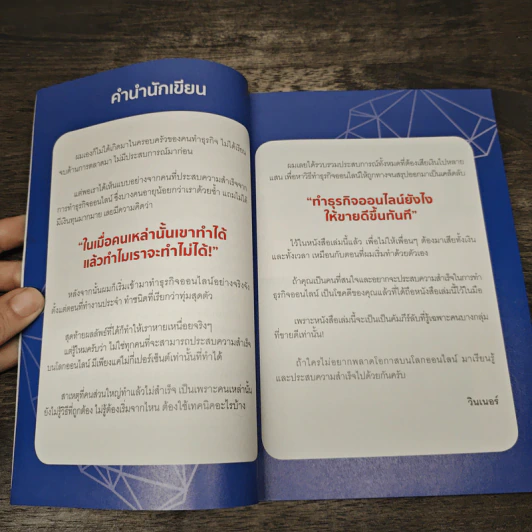 คำนำนักเขียน
ผมเองก็ไม่ได้เกิดมาในครอบครัวของคนทำธุรกิจ ไม่ได้เรียน
จบด้านการตลาดมา ไม่มีประสบการณ์มาก่อน
แต่พอเราได้เห็นแบบอย่างจากคนที่ประสบความสำเร็จจาก
การทำธุรกิจออนไลน์ ซึ่งบางคนอายุน้อยกว่าเราด้วยซ้ำ แถมไม่ได้
มีเงินทุนมากมาย เลยมีความคิดว่า
“ในเมื่อคนเหล่านั้นเขาทำได้
แล้วทำไมเราจะทำไม่ได้!”
หลังจากนั้นผมก็เริ่มเข้ามาทำธุรกิจออนไลน์อย่างจริงจัง
ตั้งแต่ตอนที่ทำงานประจำ ทำชนิดที่เรียกว่าทุ่มสุดตัว
สุดท้ายผลลัพธ์ที่ได้ก็ทำให้เราหายเหนื่อยจริงๆ
แต่รู้ไหมครับว่า ไม่ใช่ทุกคนที่จะสามารถประสบความสำเร็จ
บนโลกออนไลน์ มีเพียงแค่ไม่กี่เปอร์เซ็นต์เท่านั้นที่ทำได้
สาเหตุที่คนส่วนใหญ่ทำแล้วไม่สำเร็จ เป็นเพราะคนเหล่านั้น
ยังไม่รู้วิธีที่ถูกต้อง ไม่รู้ต้องเริ่มจากไหน ต้องใช้เทคนิคอะไรบ้าง
ผมเลยได้รวบรวมประสบการณ์ทั้งหมดที่ต้องเสียเงินไปหลาย
แสน เพื่อหาวิธีทำธุรกิจออนไลน์ให้ถูกทางจนสรุปออกมาเป็นเคล็ดลับ
“ทำธุรกิจออนไลน์ยังไง
ให้ขายดีขึ้นทันที”
ไว้ในหนังสือเล่มนี้แล้ว เพื่อไม่ให้เพื่อนๆ ต้องมาเสียทั้งเงิน
และทั้งเวลา เหมือนกับตอนที่ผมเริ่มทำด้วยตัวเอง
ถ้าคุณเป็นคนที่สนใจและอยากจะประสบความสำเร็จในการทำ
ธุรกิจออนไลน์ เป็นโชคดีของคุณแล้วที่ได้ถือหนังสือเล่มนี้ไว้ในมือ
เพราะหนังสือเล่มนี้จะเป็นเป็นคัมภีร์ลับที่รู้เฉพาะคนบางกลุ่ม
ที่ขายดีเท่านั้น!
ถ้าใครไม่อยากพลาดโอกาสบนโลกออนไลน์ มาเรียนรู้
และประสบความสำเร็จไปด้วยกันครับ
วินเนอร์